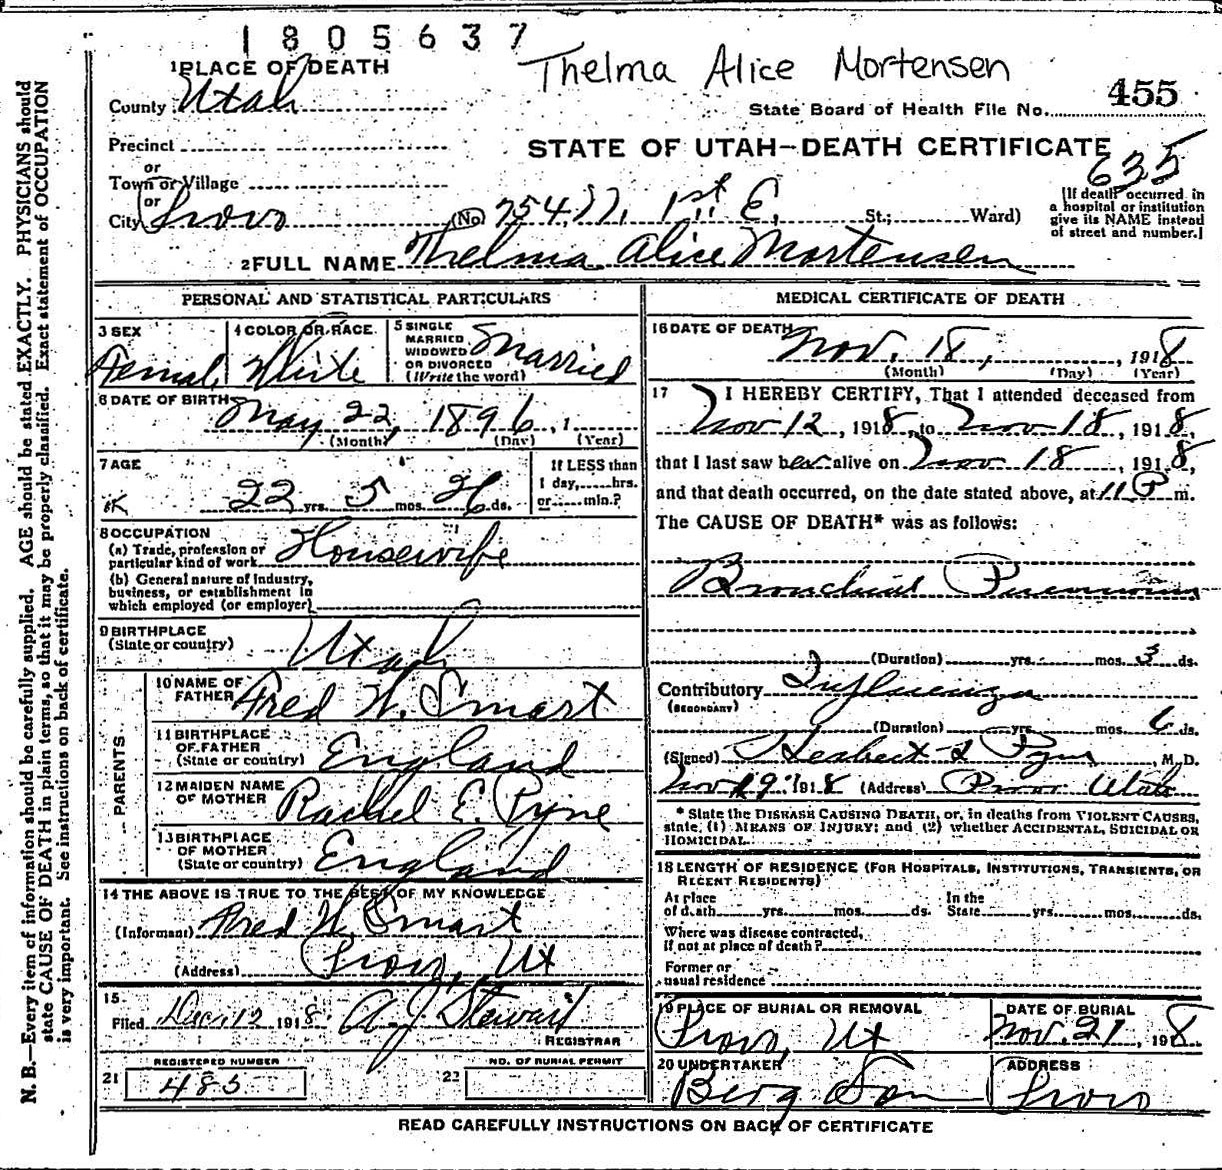 1805637
Thelma Alice Mortensen
1 PLACE OF DEATH
County Utah
State Board of Health File No. 455
Precinct
or
Town or Village
or
City Provo
STATE OF UTAH—DEATH CERTIFICATE
635
(No. 754 1st. E. St.; Ward)
[If death occurred in
a hospital or institution
give its NAME instead
of street and number.]
2 FULL NAME Thelma Alice Mortensen
PERSONAL AND STATISTICAL PARTICULARS
3 SEX
Female
4 COLOR OR RACE
White
5 SINGLE
MARRIED
WIDOWED
OR DIVORCED
(Write the word)
Married
6 DATE OF BIRTH
May 22, 1896, 1
(Month) (Day) (Year)
7 AGE
22 yrs. 5 mos. 26 ds.
If LESS than
1 day, hrs.
or min.?
8 OCCUPATION
(a) Trade, profession or
particular kind of work Housewife
(b) General nature of industry,
business, or establishment in
which employed (or employer)
9 BIRTHPLACE
(State or country) Utah
PARENTS
10 NAME OF
FATHER Fred W. Smart
11 BIRTHPLACE
OF FATHER
(State or country) England
12 MAIDEN NAME
OF MOTHER Rachel E. Pyne
13 BIRTHPLACE
OF MOTHER
(State or country) England
14 THE ABOVE IS TRUE TO THE BEST OF MY KNOWLEDGE
(Informant) Fred W. Smart
(Address) Provo, Ut
15
Filed Dec 12 1918 A. J. Stewart
REGISTRAR
REGISTERED NUMBER
21 485
NO. OF BURIAL PERMIT
22
MEDICAL CERTIFICATE OF DEATH
16 DATE OF DEATH
Nov. 18, 1918
(Month) (Day) (Year)
17 I HEREBY CERTIFY, That I attended deceased from
Nov 12, 1918, to Nov 18, 1918,
that I last saw her alive on Nov 18, 1918,
and that death occurred, on the date stated above, at 11 P m.
The CAUSE OF DEATH* was as follows:
Bronchial Pneumonia
(Duration) yrs. mos. 3 ds.
Contributory Influenza
(SECONDARY)
(Duration) yrs. mos. 6 ds.
(Signed) Herbert S Pyne, M. D.
Nov 19 1918 (Address) Provo Utah
* State the DISEASE CAUSING DEATH, or, in deaths from VIOLENT CAUSES,
state, (1) MEANS OF INJURY; and (2) whether ACCIDENTAL, SUICIDAL OR
HOMICIDAL.
18 LENGTH OF RESIDENCE (FOR HOSPITALS, INSTITUTIONS, TRANSIENTS, OR
RECENT RESIDENTS)
At place
of death yrs. mos. ds.
In the
State yrs. mos. ds.
Where was disease contracted,
If not at place of death?
Former or
usual residence
19 PLACE OF BURIAL OR REMOVAL
Provo, Ut
DATE OF BURIAL
Nov. 21, 1918
20 UNDERTAKER
Berg Son
ADDRESS
Provo
READ CAREFULLY INSTRUCTIONS ON BACK OF CERTIFICATE
N. B.—Every item of information should be carefully supplied. AGE should be stated EXACTLY. PHYSICIANS should
state CAUSE OF DEATH in plain terms, so that it may be properly classified. Exact statement of OCCUPATION
is very important. See instructions on back of certificate.